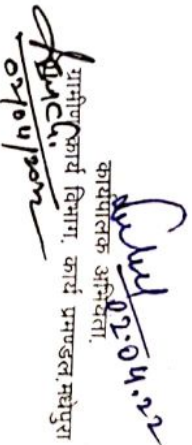 02.04.22
कार्यपालक अभियंता,
ग्रामीण कार्य विभाग, कार्य प्रमण्डल, मधेपुरा